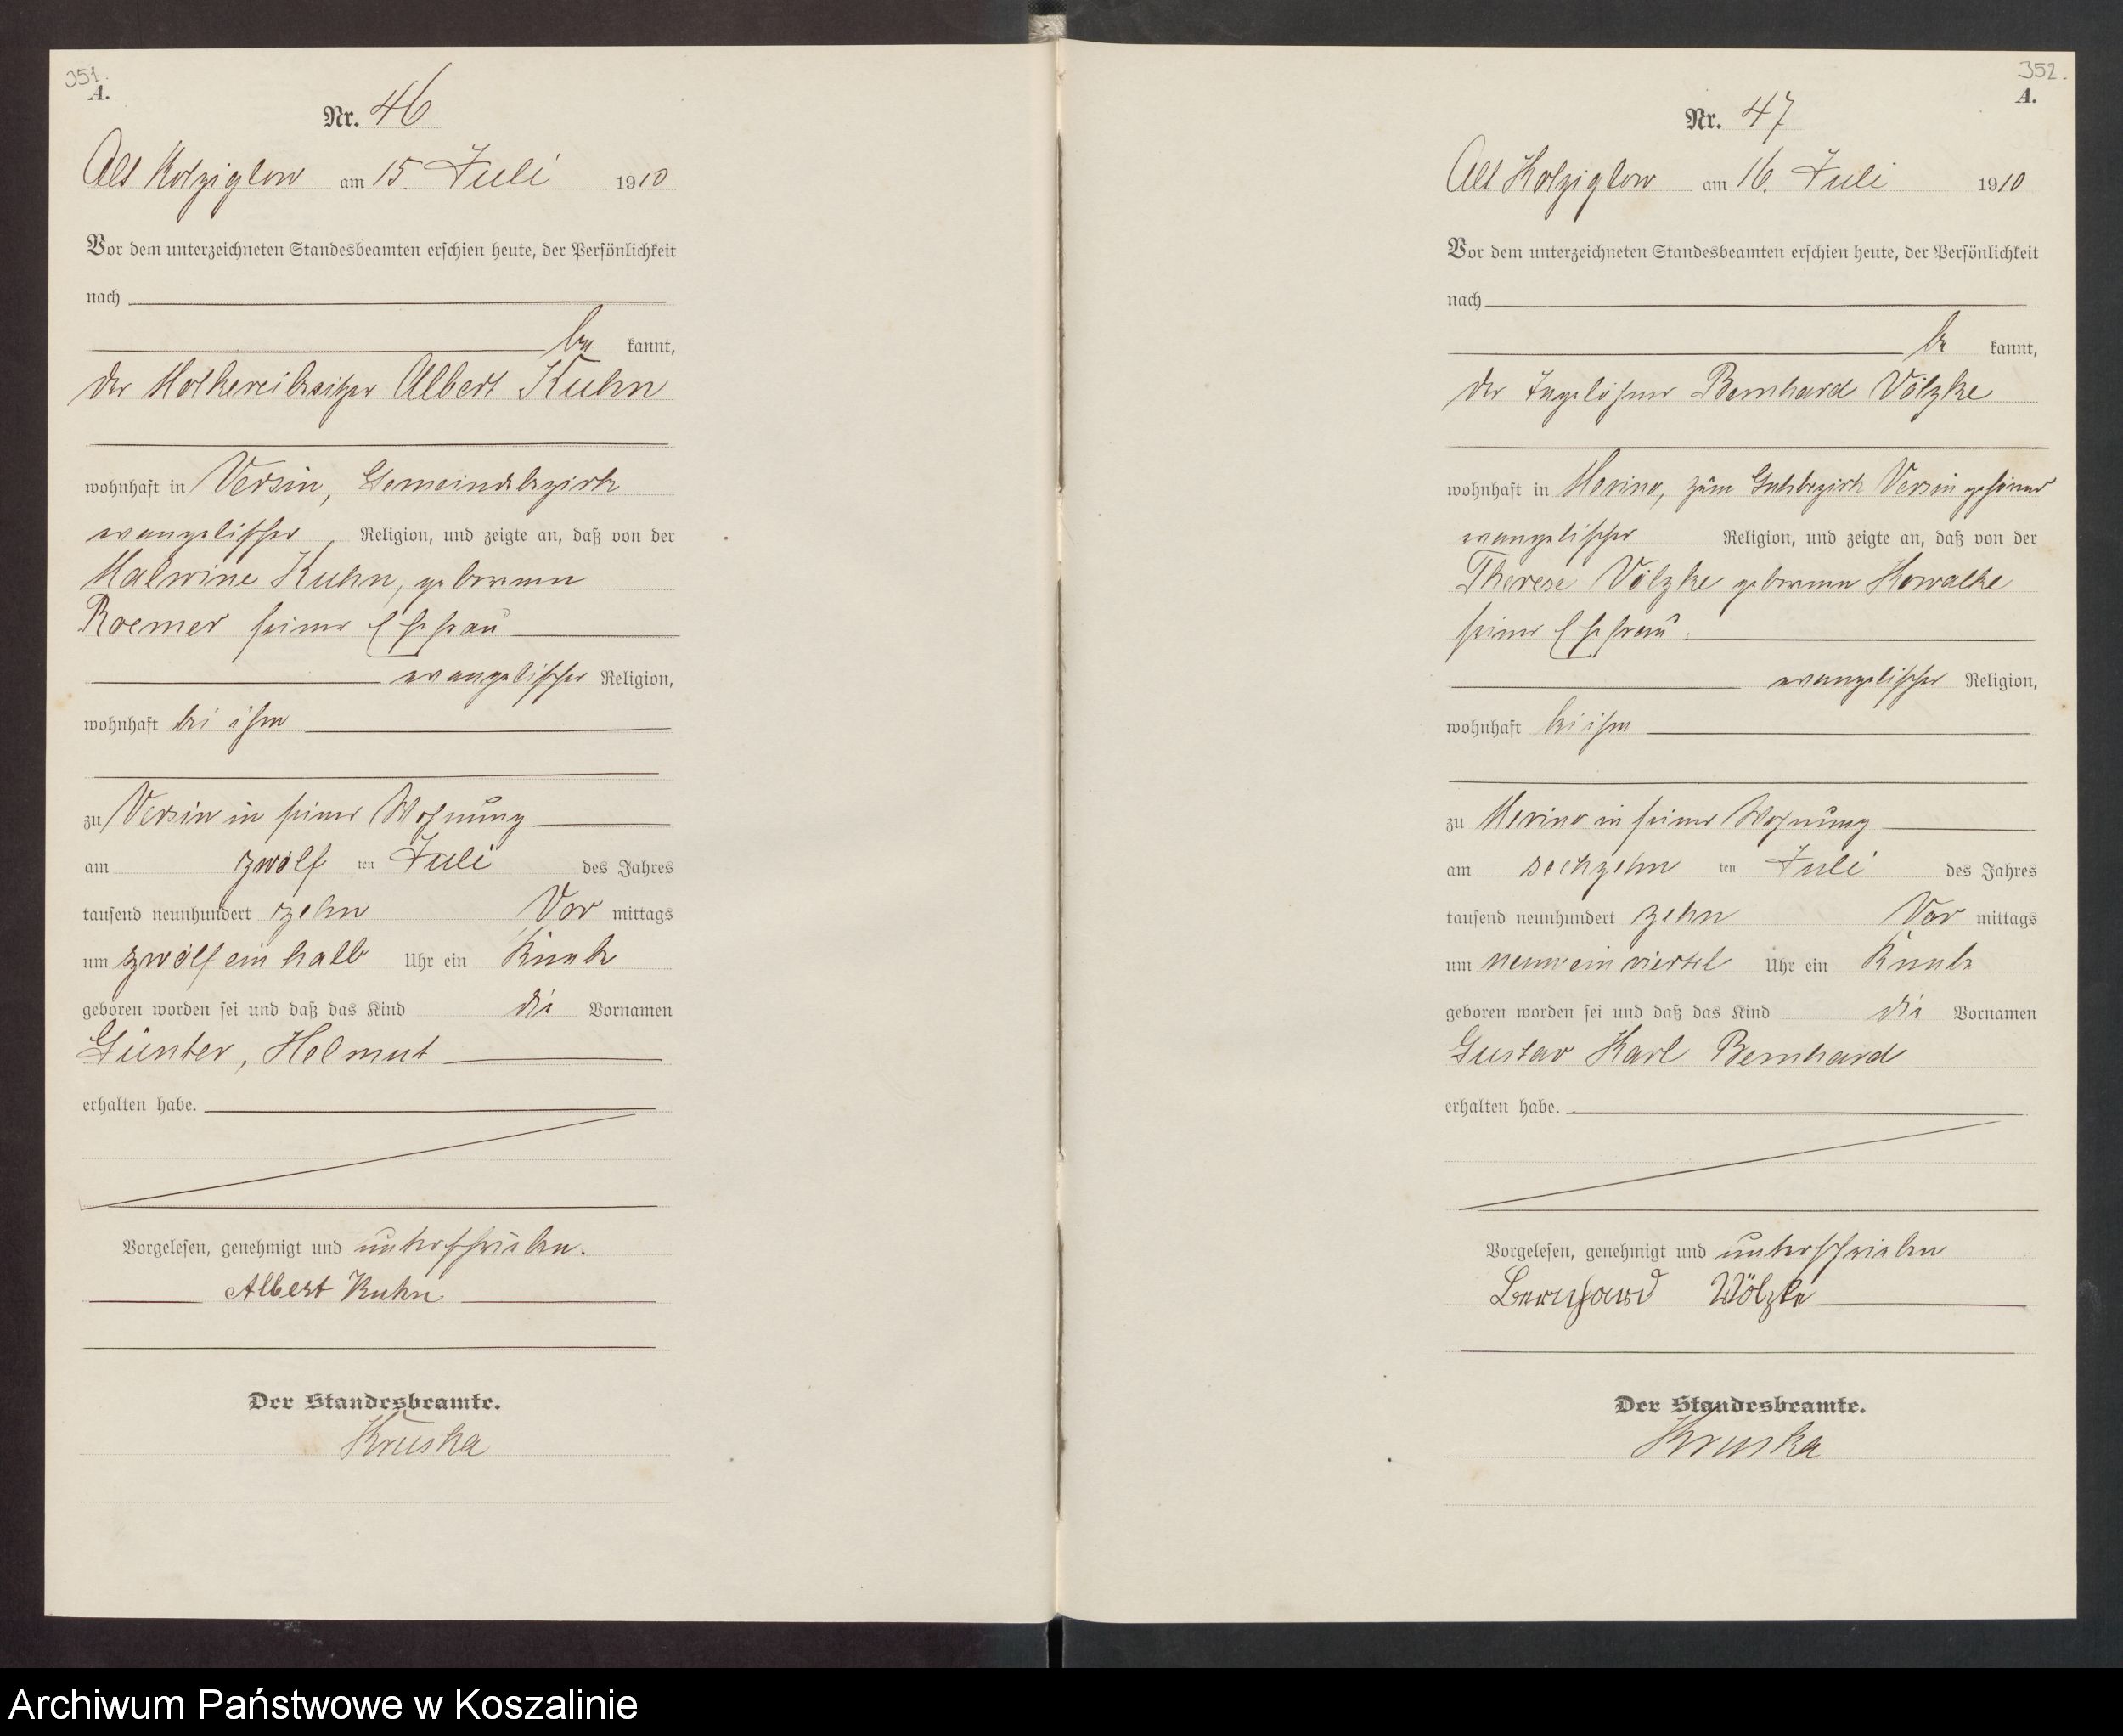 351.
A.
Nr. 46
Alt Kolziglow am 15. Juli 1910
Vor dem unterzeichneten Standesbeamten erschien heute, der Persönlichkeit
nach
be kannt,
der Molkereibesitzer Albert Kuhn
wohnhaft in Versin, Gemeindebezirk
evangelischer Religion, und zeigte an, daß von der
Malwine Kuhn, geborenen
Roemer seiner Ehefrau
evangelischer Religion,
wohnhaft bei ihm
zu Versin in seiner Wohnung
am zwölf ten Juli des Jahres
tausend neunhundert zehn Vor mittags
um zwölf ein halb Uhr ein Knabe
geboren worden sei und daß das Kind die Vornamen
Günter, Helmut
erhalten habe.
Vorgelesen, genehmigt und unterschrieben.
Albert Kuhn
Der Standesbeamte.
Kruska
352.
A.
Nr. 47
Alt Kolziglow am 16. Juli 1910
Vor dem unterzeichneten Standesbeamten erschien heute, der Persönlichkeit
nach
be kannt,
der Tagelöhner Bernhard Völzke
wohnhaft in Merino, zum Gutsbezirk Versin gehörend
evangelischer Religion, und zeigte an, daß von der
Therese Völzke geborenen Kowalke
seiner Ehefrau
evangelischer Religion,
wohnhaft bei ihm
zu Merino in seiner Wohnung
am sechzehn ten Juli des Jahres
tausend neunhundert zehn Vor mittags
um neun ein viertel Uhr ein Knabe
geboren worden sei und daß das Kind die Vornamen
Gustav Karl Bernhard
erhalten habe.
Vorgelesen, genehmigt und unterschrieben
Bernhard Völzke
Der Standesbeamte.
Kruska
Archiwum Państwowe w Koszalinie